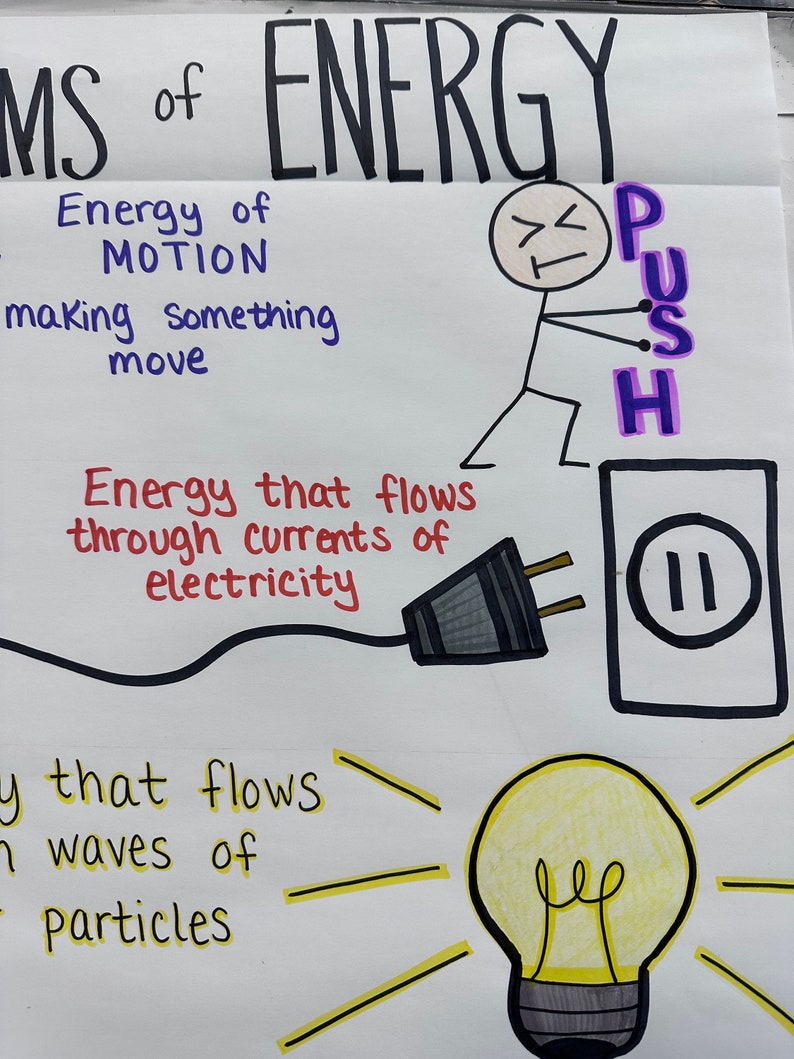 MS of ENERGY
Energy of
MOTION
making something
move
PUSH
Energy that flows
through currents of
electricity
y that flows
waves of
particles